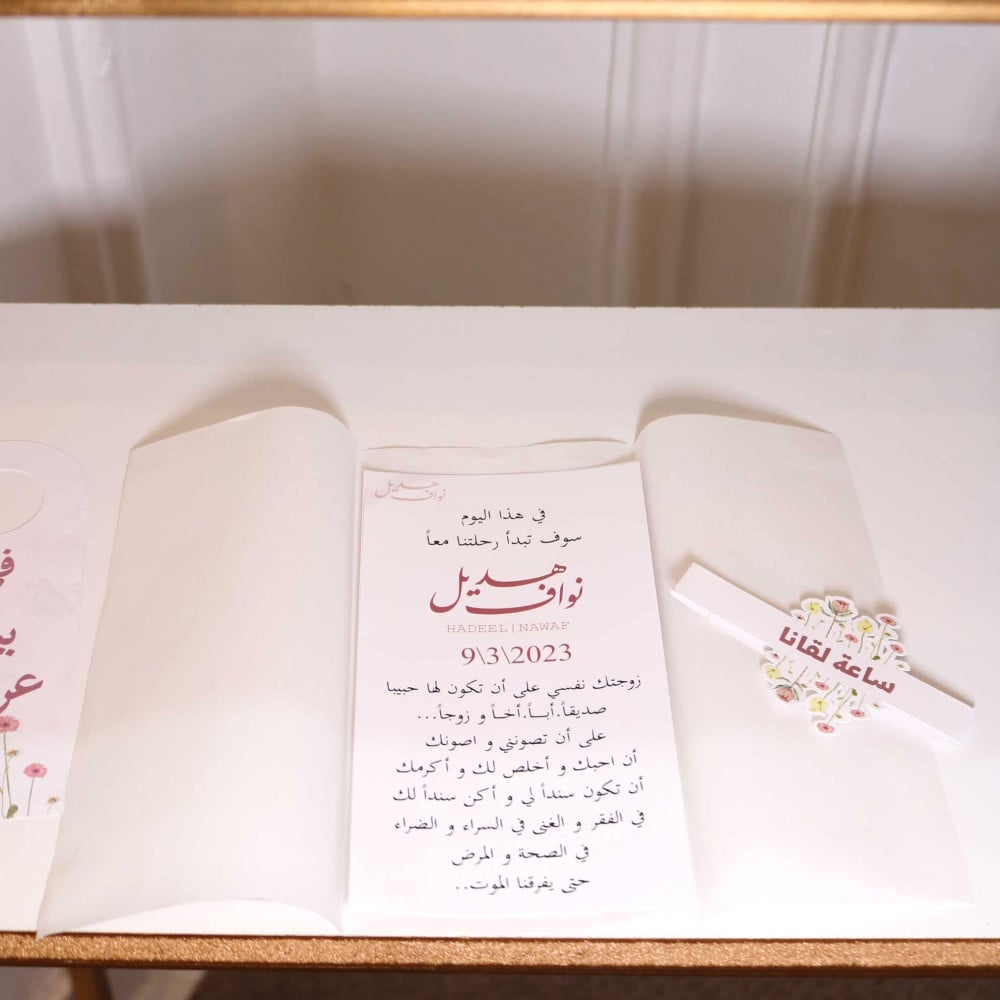 هديل
نواف
في هذا اليوم
سوف تبدأ رحلتنا معاً
هديل
نواف
HADEEL|NAWAF
9\3\2023
زوجتك نفسي على أن تكون لها حبيبا
صديقاً.أبــاً.أخــاً و زوجاً...
على أن تصونني و اصونك
أن احبك و أخلص لك و أكرمك
أن تكون سنداً لي و أكن سنداً لك
في الفقر و الغنى في السراء و الضراء
في الصحة و المرض
حتى يفرقنا الموت..
ساعة لقانا